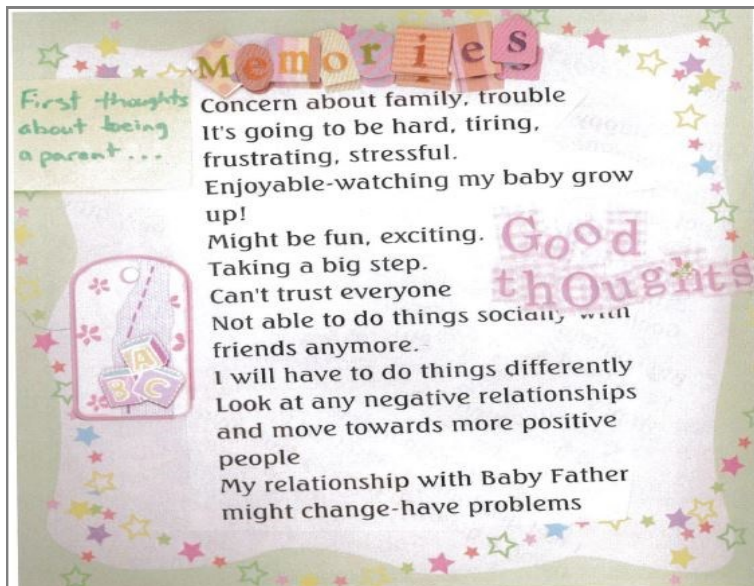 Memories
First thoughts
about being
a parent...
Concern about family, trouble
It's going to be hard, tiring,
frustrating, stressful.
Enjoyable-watching my baby grow
up!
Might be fun, exciting.
Taking a big step.
Can't trust everyone
Good
thoughts
Not able to do things socially with
friends anymore.
I will have to do things differently
Look at any negative relationships
and move towards more positive
people
My relationship with Baby Father
might change-have problems
A
B C